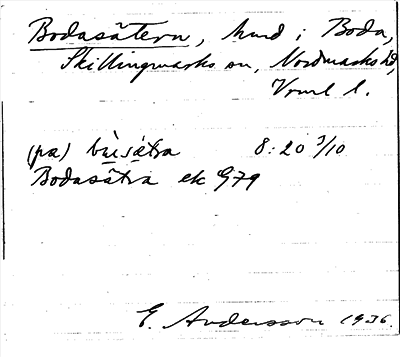 Bodasätern, hmd i Boda,
Skillingmarks sn, Nordmarks hd,
Vrml l.
(pa) bùsǽtra 8:20 3/10
Bodasätra ek G79
E. Andersson 1936.